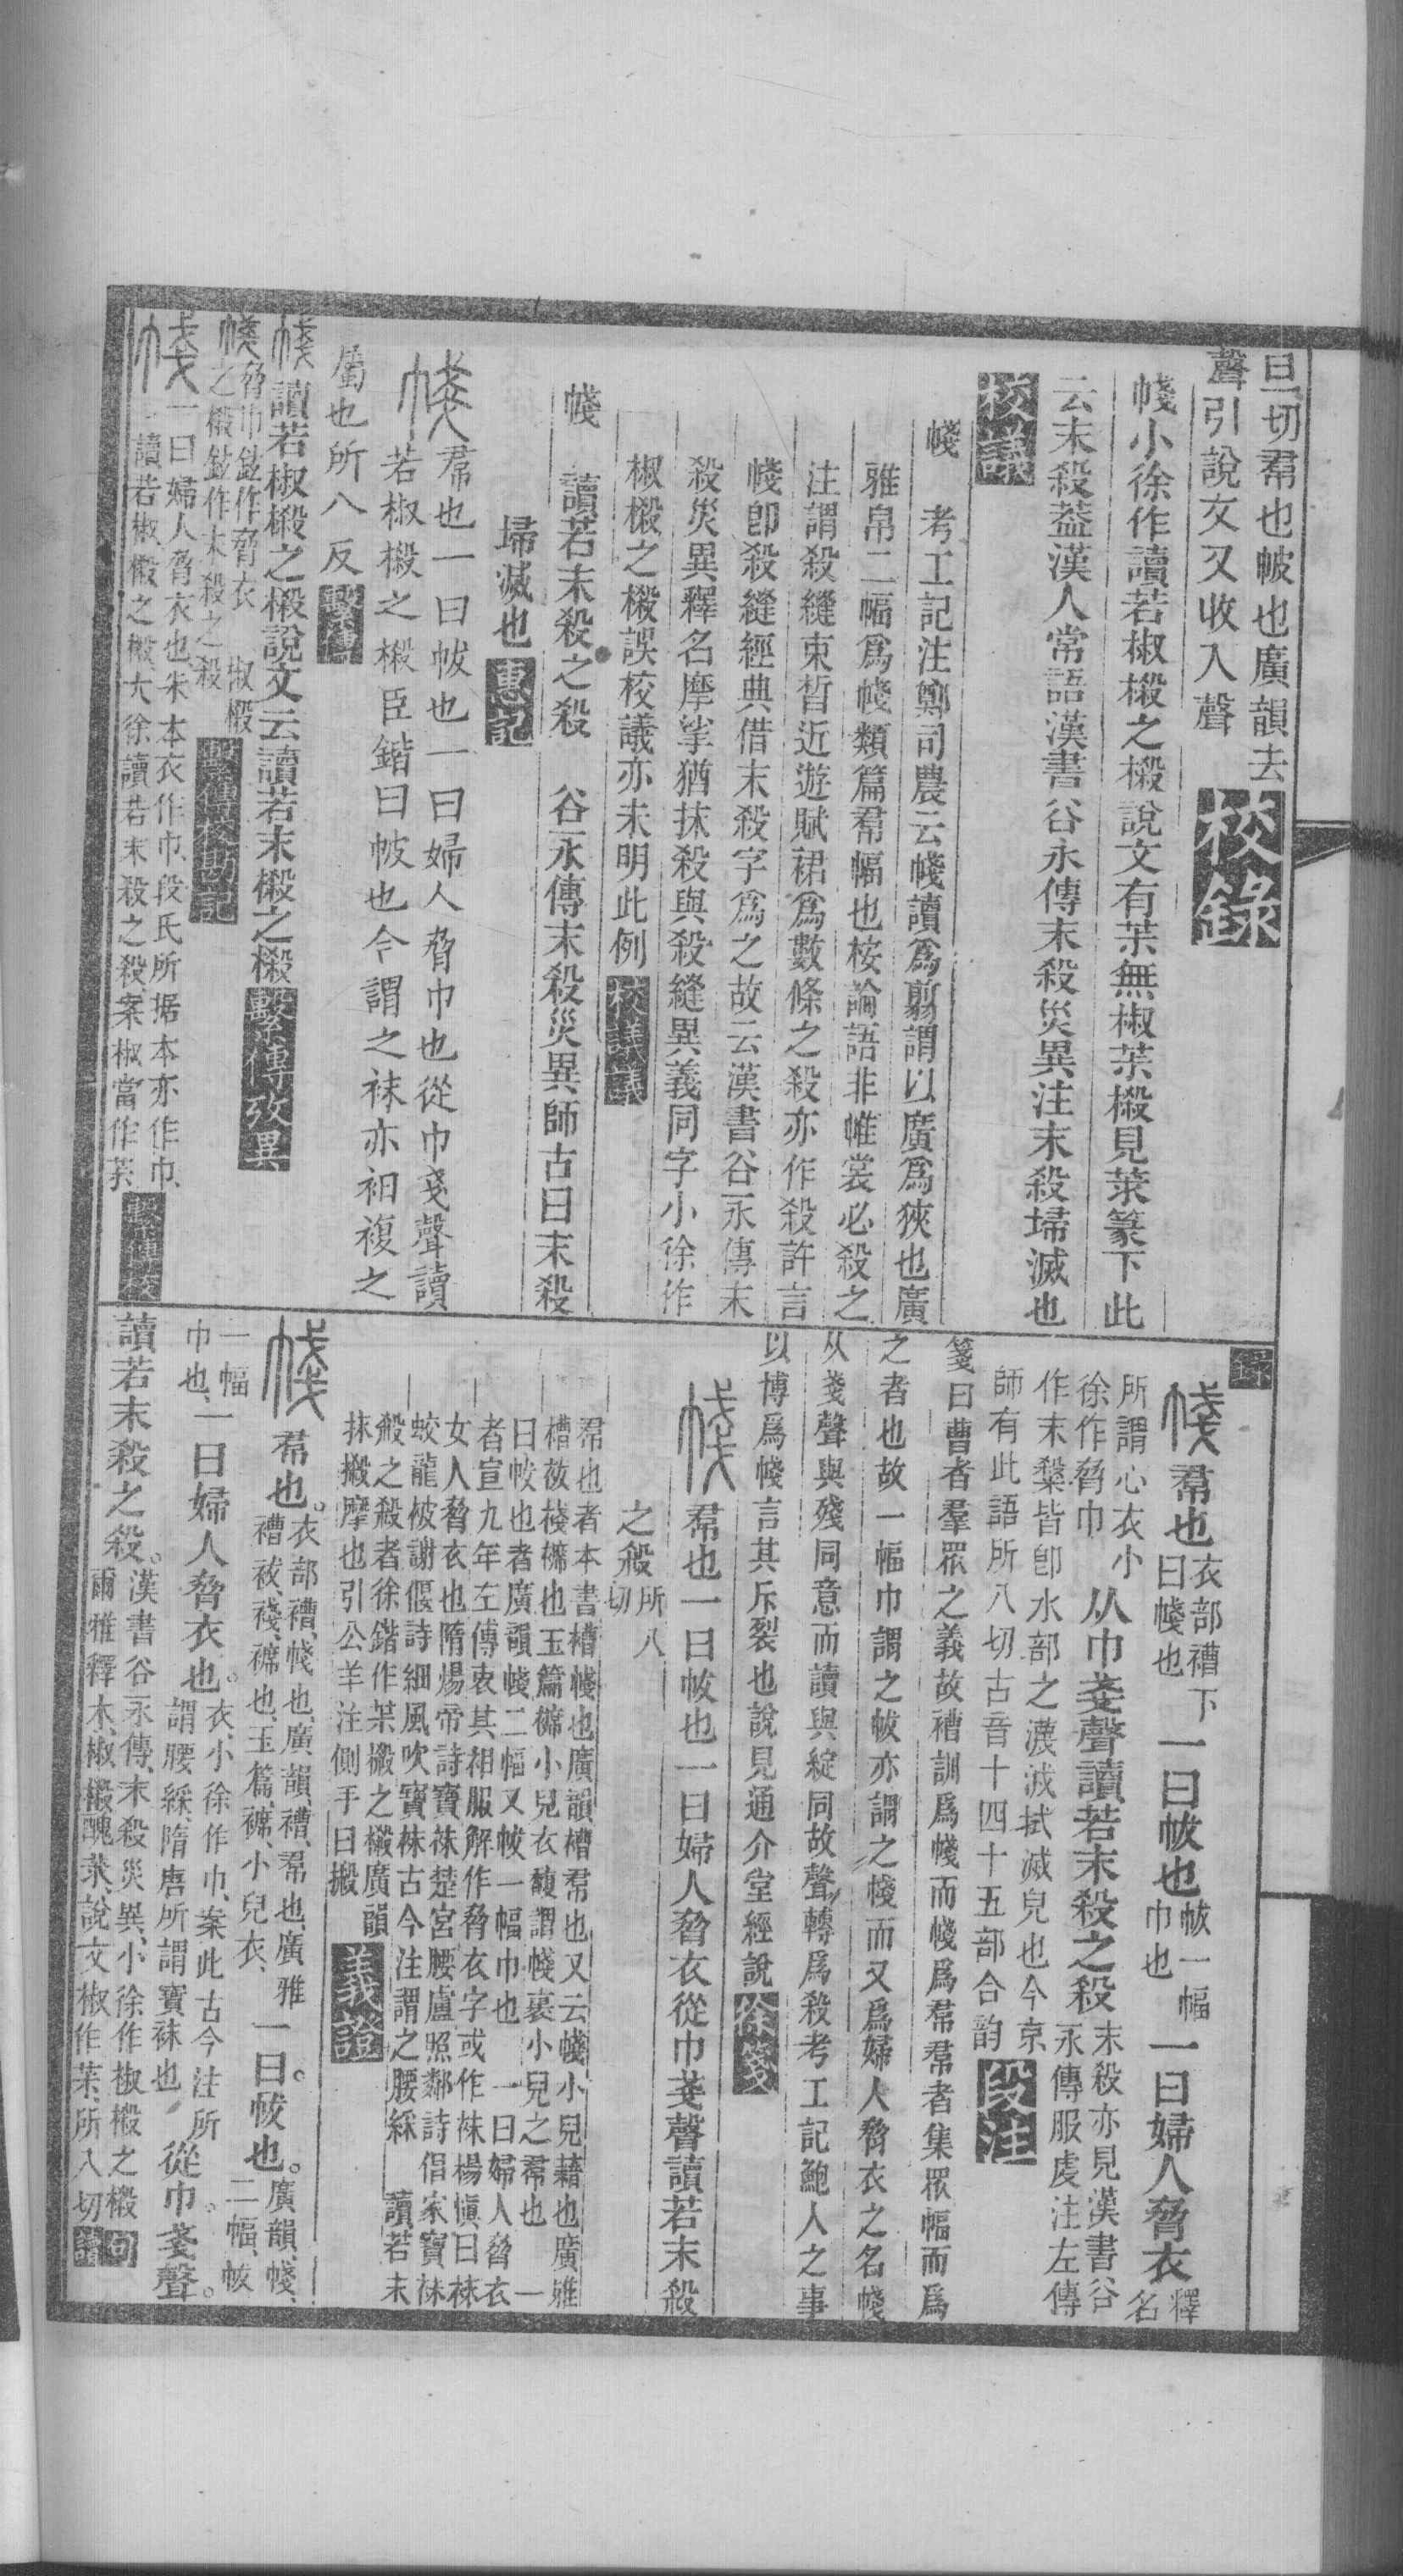 旦切帬也帔也廣韻去
聲引說文又收入聲
校錄
幓小徐作讀若椒樧之樧說文有茮無椒茮樧見莍篆下此
云末殺葢漢人常語漢書谷永傳末殺災異注末殺埽滅也
校議
帴 考工記注鄭司農云帴讀爲翦謂以廣爲狹也廣
雅帛二幅爲帴類篇帬幅也桉論語非帷裳必殺之
注謂殺縫束晳近遊賦裙爲數條之殺亦作殺許言
帴卽殺縫經典借末殺字爲之故云漢書谷永傳末
殺災異釋名摩挲猶抹殺與殺縫異義同字小徐作
椒樧之樧誤校議亦未明此例
校議議
帴 讀若末殺之殺 谷永傳末殺災異師古曰末殺
埽滅也
惠記
帴 帬也一曰帗也一曰婦人脅巾也從巾戔聲讀
若椒樧之樧臣鍇曰帔也今謂之袜亦衵複之
屬也所八反
繫傳
帴讀若椒樧之樧說文云讀若末樧之樧
繫傳攷異
帴脅巾鉉作脅衣 椒樧
之樧鉉作末殺之殺
繫傳校勘記
帴一曰婦人脅衣也朱本衣作巾段氏所据本亦作巾
讀若椒樧之樧大徐讀若末殺之殺案椒當作茮
繫傳校
錄
帴 帬也衣部褿下
曰帴也一曰帗也帗一幅
巾也一曰婦人脅衣釋名
所謂心衣小
徐作脅巾从巾戔聲讀若末殺之殺末殺亦見漢書谷
永傳服虔注左傳
作末槃皆卽水部之瀎泧拭滅皃也今京
師有此語所八切古音十四十五部合韵
段注
箋曰曹者羣眾之義故褿訓爲帴而帴爲帬帬者集眾幅而爲
之者也故一幅巾謂之帗亦謂之帴而又爲婦人脅衣之名帴
从戔聲與殘同意而讀與綻同故聲轉爲殺考工記鮑人之事
以博爲帴言其斥裂也說見通介堂經說
徐箋
帴 帬也一曰帗也一曰婦人脅衣從巾戔聲讀若末殺
之殺所八
切
帬也者本書褿帴也廣韻褿帬也又云帴小兒藉也廣雅
褿袚㡞㡘也玉篇㡘小兒衣馥謂帴裹小兒之帬也 一
曰帗也者廣韻帴二幅又帗一幅巾也 一曰婦人脅衣
者宣九年左傳衷其衵服解作脅衣字或作袜楊愼曰袜
女人脅衣也隋煬帝詩寶袜楚宮腰盧照鄰詩倡家寶袜
蛟龍被謝偃詩細風吹寶袜古今注謂之腰綵 讀若末
殺之殺者徐鍇作茮樧之樧廣韻
抹摋摩也引公羊注側手曰摋
義證
帴 帬也衣部褿帴也廣韻褿帬也廣雅
褿袚㡘也玉篇㡘小兒衣一曰帗也廣韻帴
二幅帗
一幅
巾也一曰婦人脅衣也衣小徐作巾案此古今注所
謂腰綵隋唐所謂寶袜也從巾戔聲
讀若末殺之殺漢書谷永傳末殺災異小徐作椒樧之樧
爾雅釋木椒樧醜莍說文椒作茮所八切
句讀